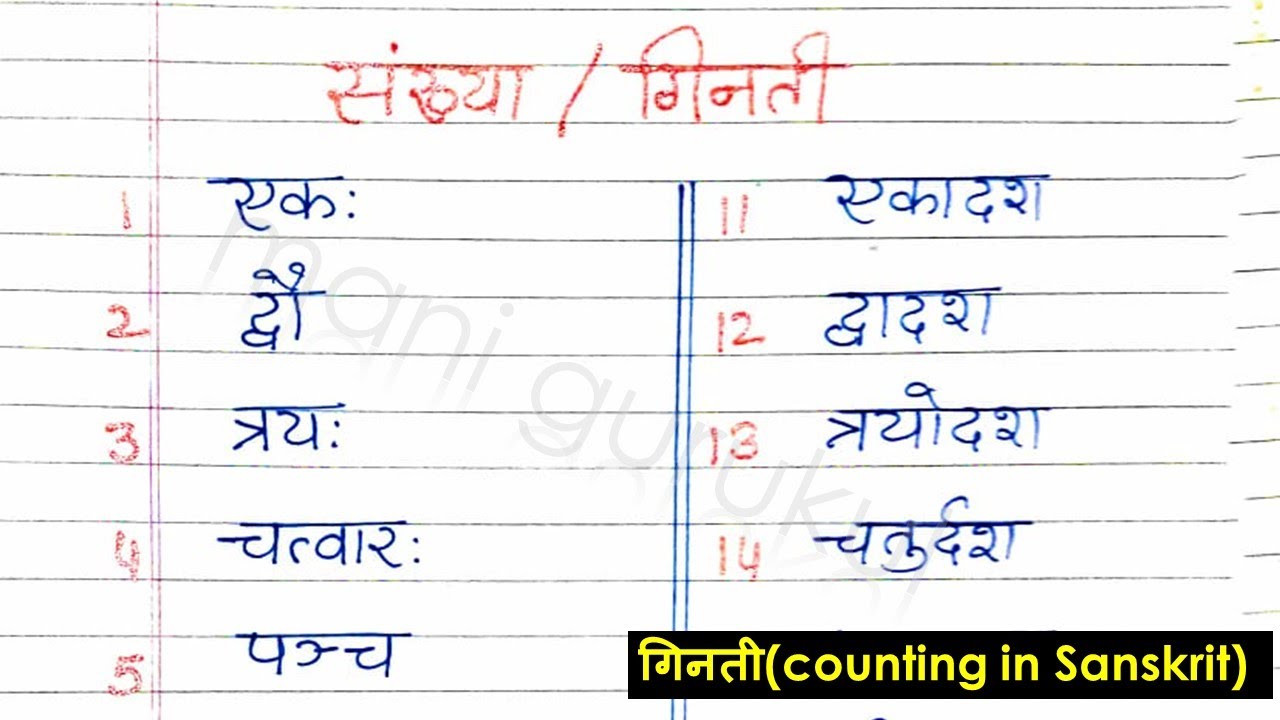 संख्या / गिनती
1 एक: 11 एकादश
2 द्वौ 12 द्वादश
3 त्रय: 13 त्रयोदश
4 चत्वार: 14 चतुर्दश
5 पञ्च
गिनती(counting in Sanskrit)
mani gurukul